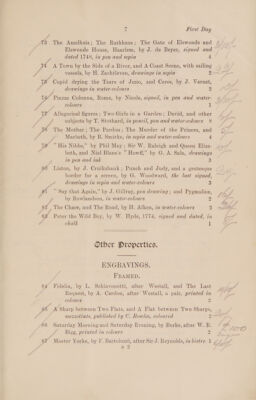 7 First Day
73 The Amelhuis; The Rathhuus; The Gate of Elswoude and
Elswoude House, Haarlem, by J. de Beyer, signed and
dated 1748, in pen and sepia 4
74 A Town by the Side of a River, and A Coast Scene, with sailing
vessels, by H. Zachtleven, drawings in sepia 2
75 Cupid drying the Tears of Juno, and Ceres, by J. Vernet,
drawings in water-colours 2
76 Piazze Colonna, Rome, by Nicole, signed, in pen and water-
colours 1
77 Allegorical figures; Two Girls in a Garden; David, and other
subjects by T. Stothard, in pencil, pen and water-colours
78 The Mother; The Pardon; The Murder of the Princes, and
Macbeth, by R. Smirke, in sepia and water-colours 4
79 "His Nibbs," by Phil May; Sir W. Raleigh and Queen Eliza-
beth, and Nial Blane's "Howff," by G. A. Sala, drawings
in pen and ink 3
80 Liston, by J. Cruikshank; Punch and Judy, and a grotesque
border for a screen, by G. Woodward, the last signed,
drawings in sepia and water-colours
81 "Say that Again," by J. Gillray, pen drawing; and Pygmalion,
by Rowlandson, in water-colours 2
82 The Chase, and The Road, by H. Alken, in water-colours 2
83 Peter the Wild Boy, by W. Hyde, 1774, signed and dated, in
chalk 1
Other Properties.
ENGRAVINGS.
FRAMED.
84 Fidelia, by L. Schiavonetti, after Westall, and The Last
Request, by A. Cardon, after Westall, a pair, printed in
colours 2
85 A Sharp between Two Flats, and A Flat between Two Sharps,
mezzotints, published by C. Bowles, coloured 2
86 Saturday Morning and Saturday Evening, by Burke, after W. R.
Bigg, printed in colours 2
87 Master Yorke, by F. Bartolozzi, after Sir J. Reynolds, in bistre